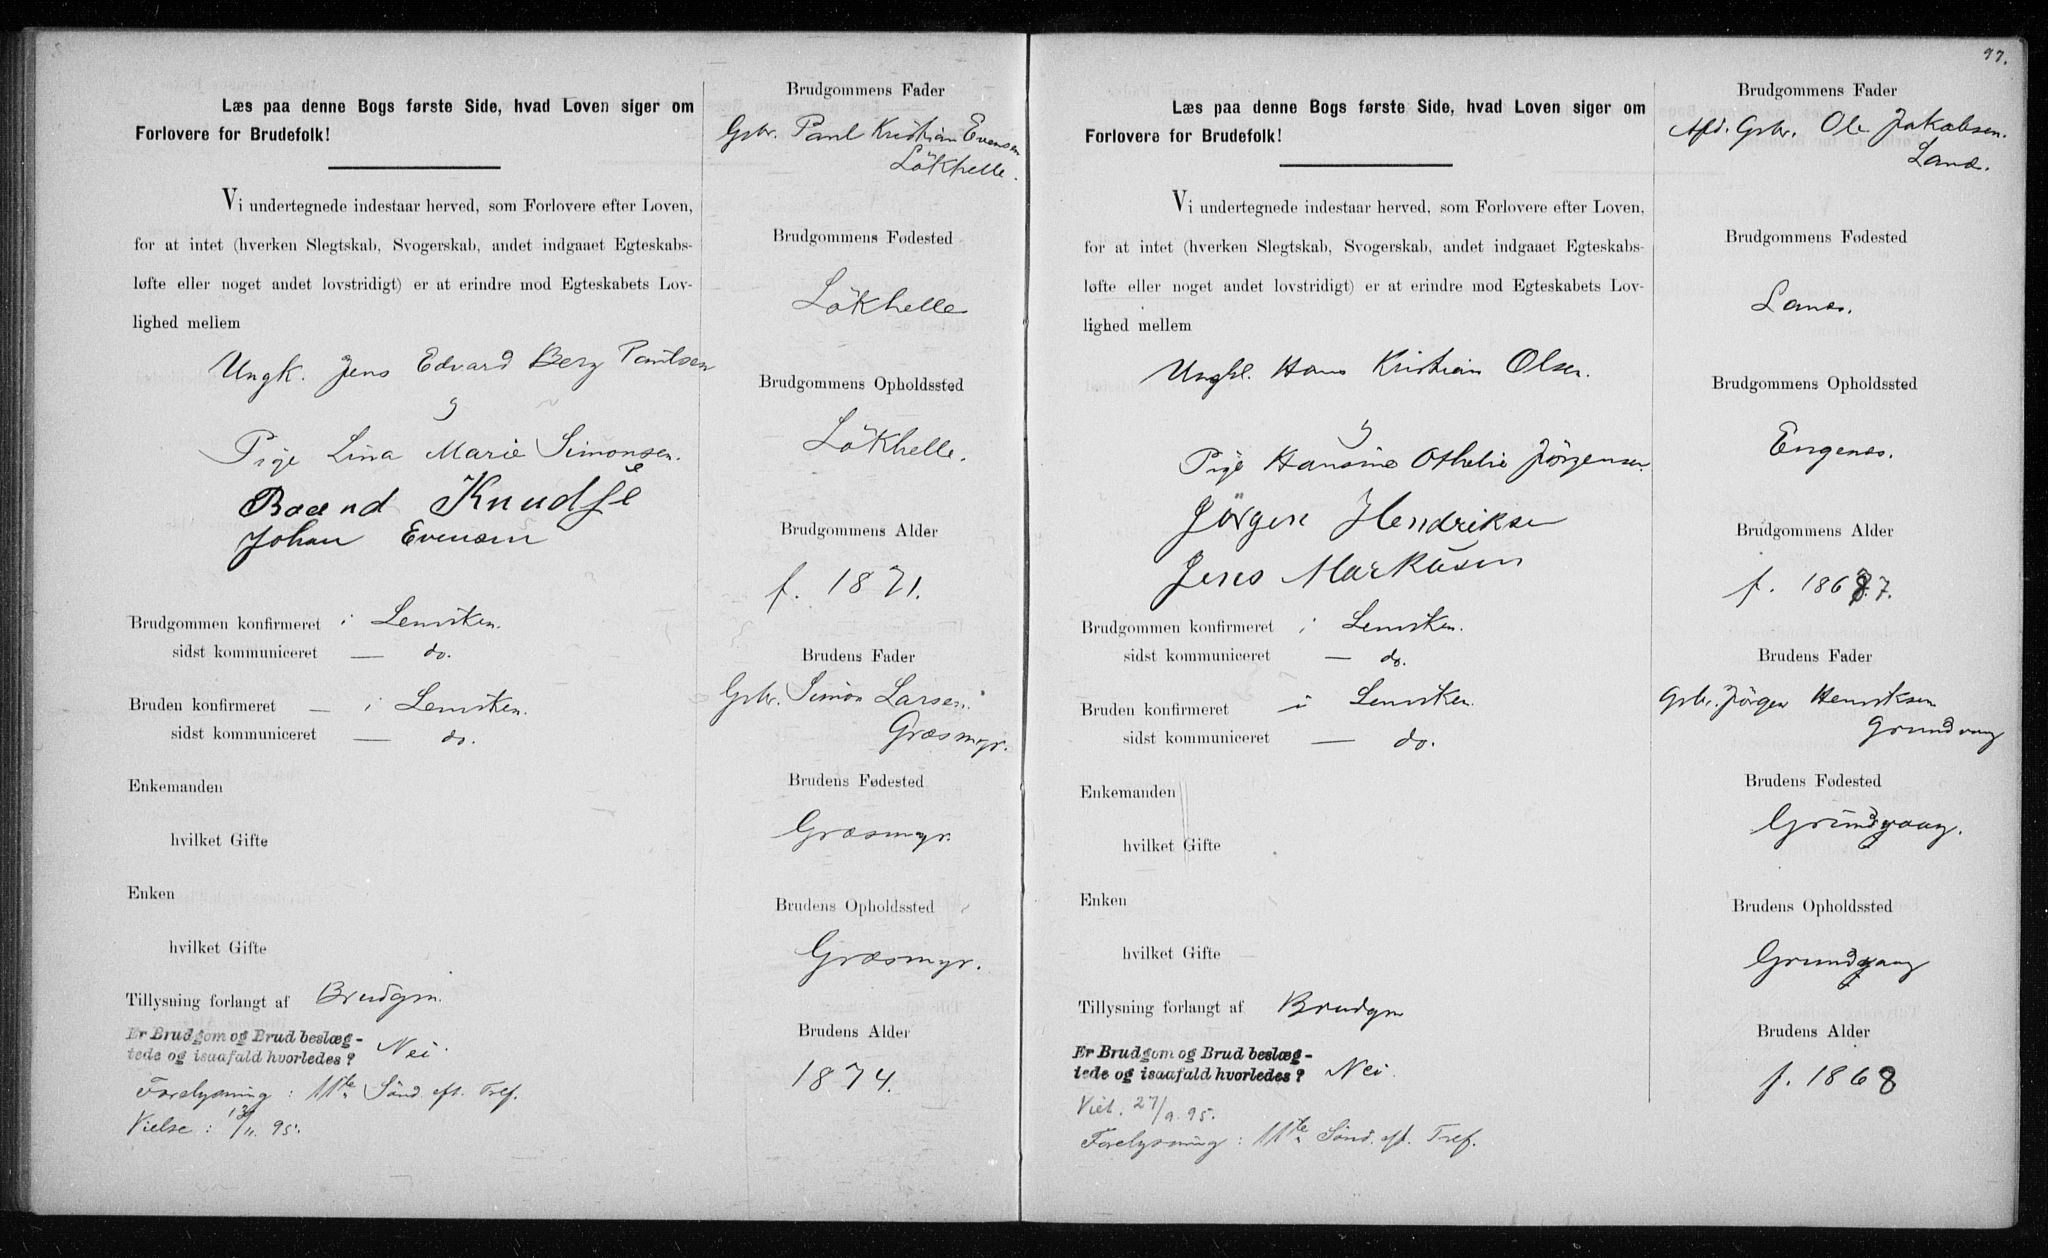 Læs paa denne Bogs første Side, hvad Loven siger om
Forlovere for Brudefolk!
Vi undertegnede indestaar herved, som Forlovere efter Loven,
for at intet (hverken Slegtskab, Svogerskab, andet indgaaet Egteskabs-
løfte eller noget andet lovstridigt) er at erindre mod Egteskabets Lov-
lighed mellem
Ungk. Jens Edvard Berg Paulsen
og
Pige Lina Marie Simonsen.
Baand Knudse
Johan Evensen
Brudgommen konfirmeret i Lenviken.
sidst kommuniceret — do.
Bruden konfirmeret — i Lenviken.
sidst kommuniceret — do.
Enkemanden
hvilket Gifte
Enken
hvilket Gifte
Tillysning forlangt af Brudgm.
Er Brudgom og Brud beslæg-
tede og isaafald hvorledes? Nei.
Forelysning: 11te Sønd. eft. Tref.
Vielse: /11. 95.
Brudgommens Fader
Gbr. Paul Kristian Evensen
Lökhelle.
Brudgommens Fødested
Lökhelle
Brudgommens Opholdssted
Lökhelle.
Brudgommens Alder
f. 1871.
Brudens Fader
Gbr. Simon Larsen.
Græsmyr.
Brudens Fødested
Græsmyr.
Brudens Opholdssted
Græsmyr.
Brudens Alder
1874.
97.
Læs paa denne Bogs første Side, hvad Loven siger om
Forlovere for Brudefolk!
Vi undertegnede indestaar herved, som Forlovere efter Loven,
for at intet (hverken Slegtskab, Svogerskab, andet indgaaet Egteskabs-
løfte eller noget andet lovstridigt) er at erindre mod Egteskabets Lov-
lighed mellem
Ungkl. Hans Kristian Olsen.
og
Pige Hansine Othelie Jørgensen
Jörgen Hendriksen
Jens Markusen
Brudgommen konfirmeret i Lenviken.
sidst kommuniceret — do.
Bruden konfirmeret i Lenviken.
sidst kommuniceret — do.
Enkemanden
hvilket Gifte
Enken
hvilket Gifte
Tillysning forlangt af Brudgm
Er Brudgom og Brud beslæg-
tede og isaafald hvorledes? Nei.
Viet. 27/9. 95.
Forelysning: 11te Sønd. eft. Tref.
Brudgommens Fader
Afd. Gbr. Ole Jakobsen.
Lanes.
Brudgommens Fødested
Lanes.
Brudgommens Opholdssted
Engenes.
Brudgommens Alder
f. 1867.
Brudens Fader
Gbr. Jørgen Henriksen
Grundvaag
Brudens Fødested
Grundvaag.
Brudens Opholdssted
Grundvaag
Brudens Alder
f. 1868